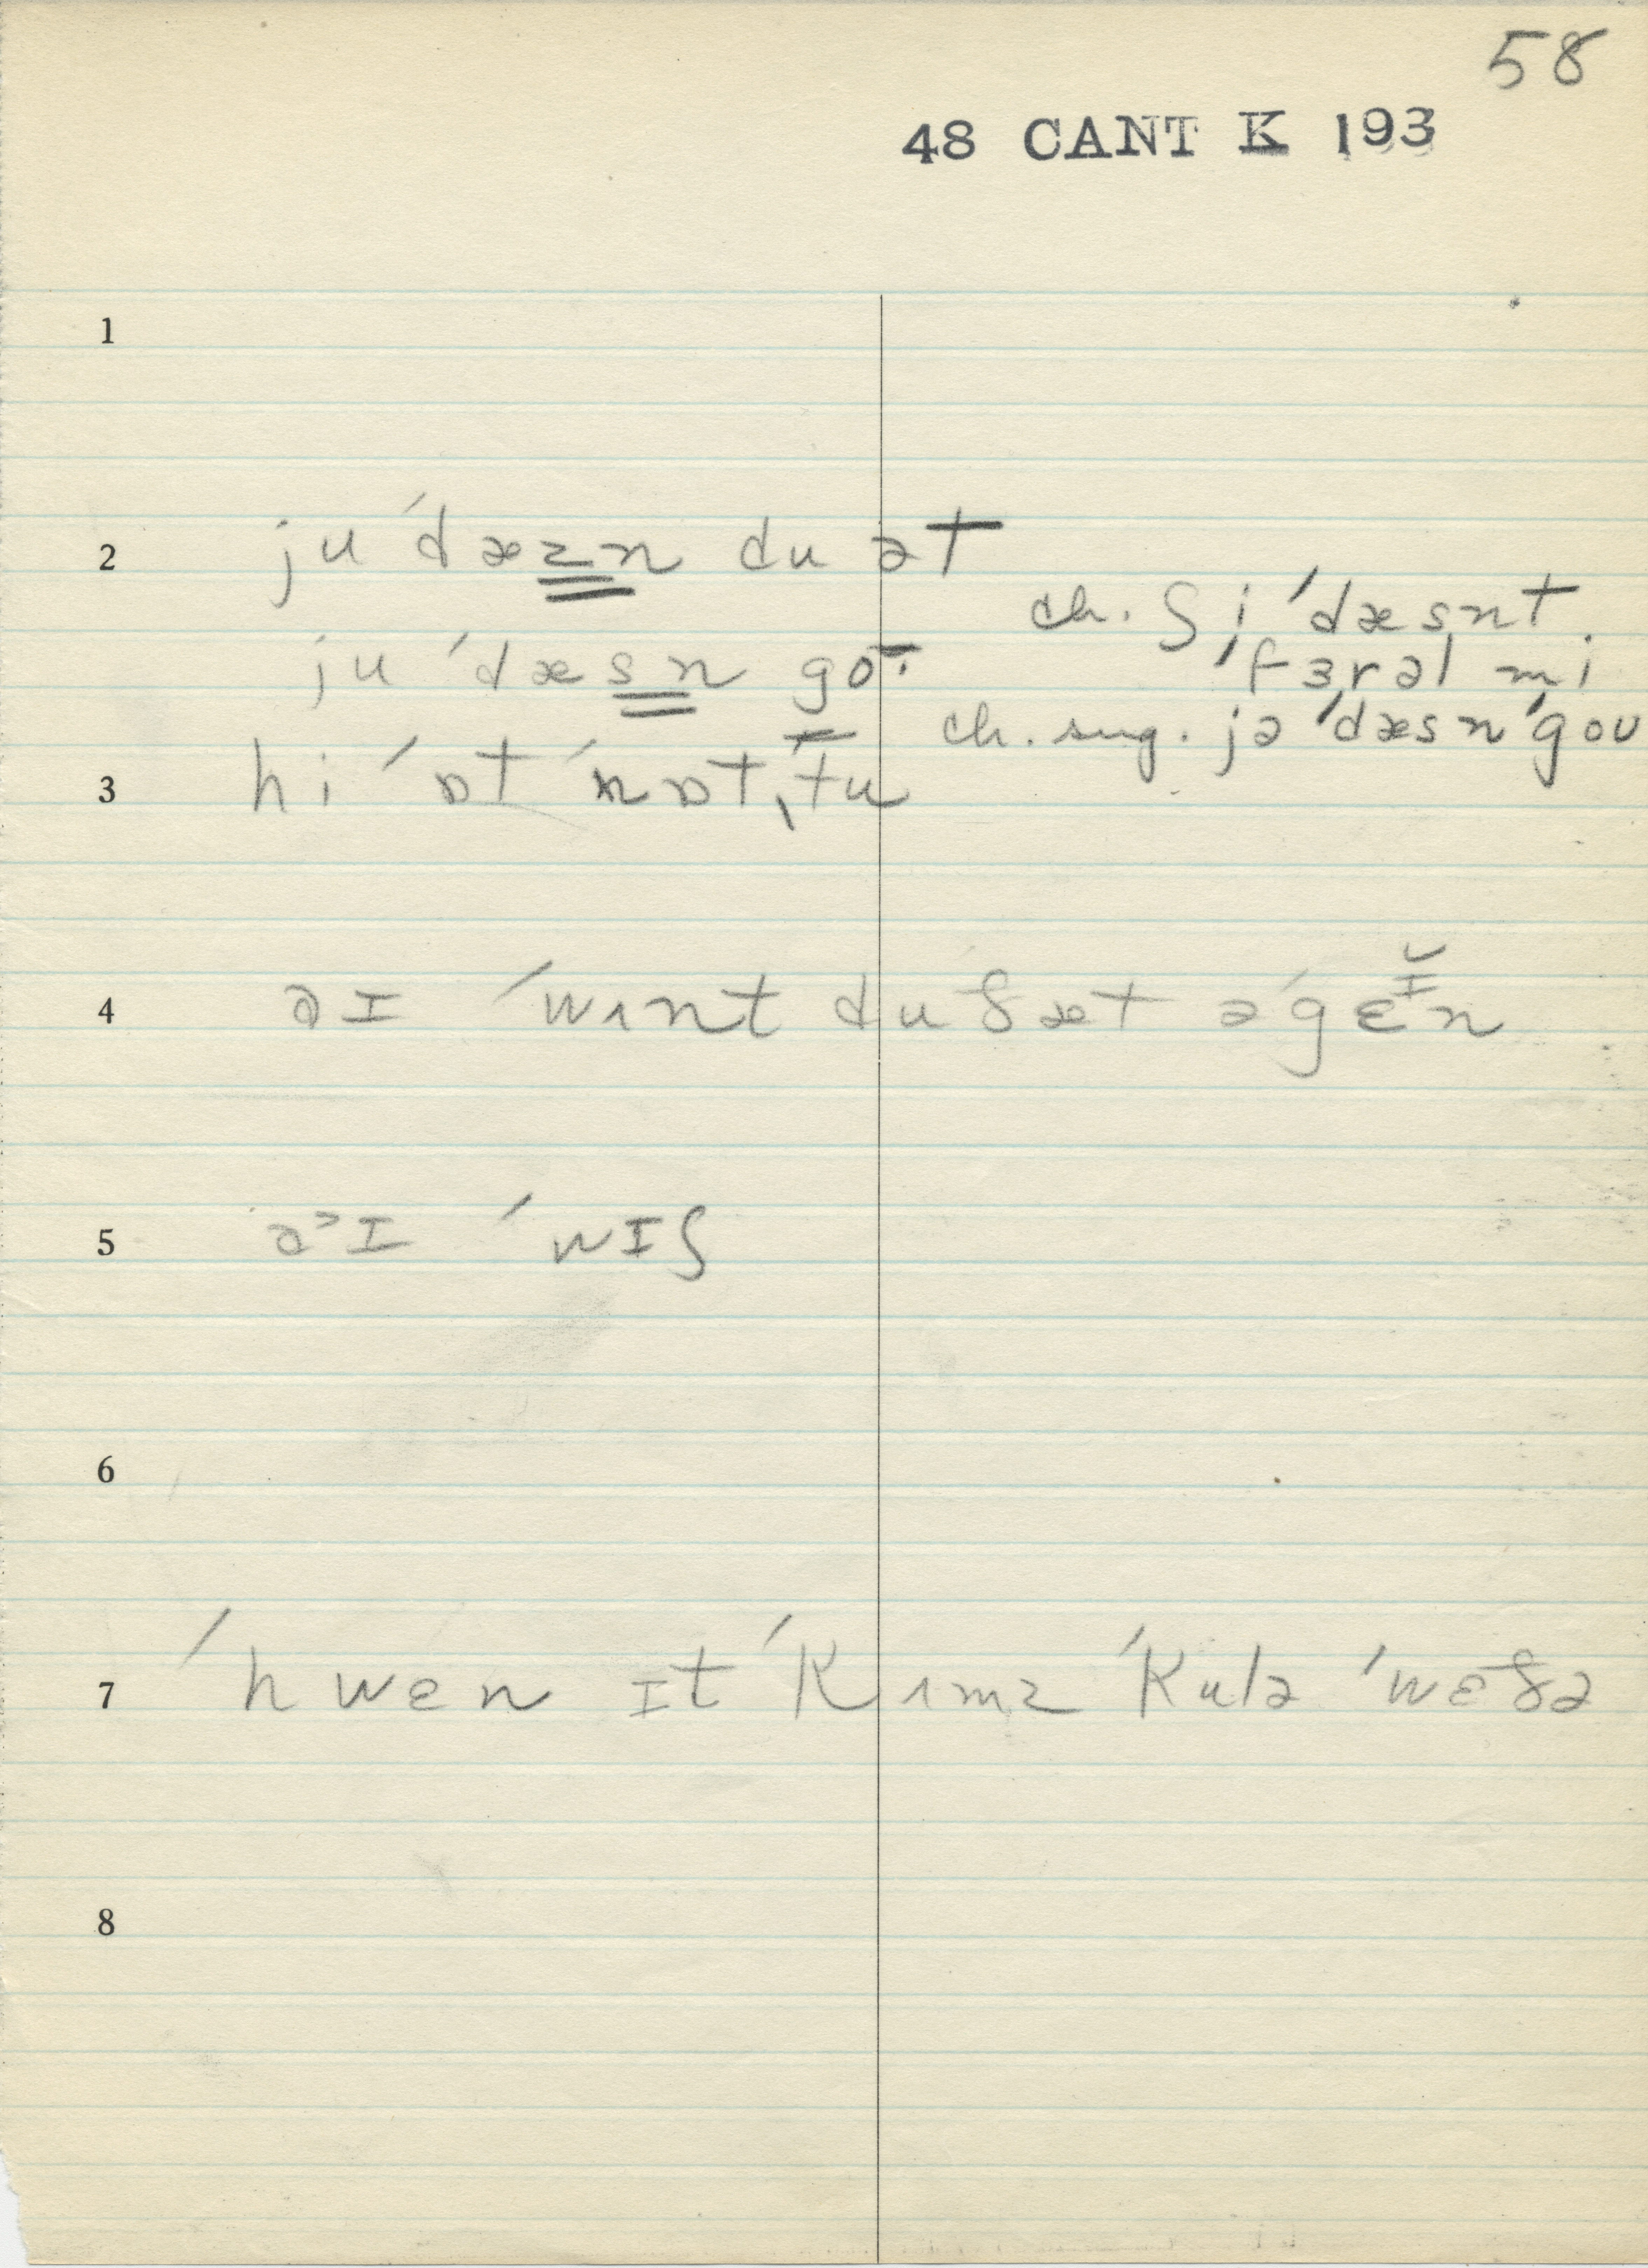 58
48 CANT K 193
1
2 ju ˈdæzn du ət
ch. ʃi ˈdæsnt
ju ˈdæsn go·
ˈfɜrəl mi
ch. sug. jə ˈdæsn ˈgoʊ
3 hi ˈɒt ˈnɒt ˌtu
4 əɪ ˈwɪnt du ðæt əˈgɛɪ̆n
5 əɪ ˈwɪʃ
6
7 ˈhwɛn ɪt ˈkɪmz ˈkulə ˈwɛðə
8